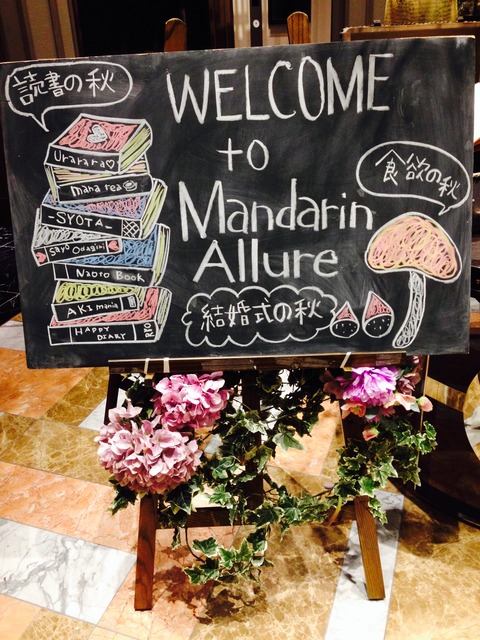 読書の秋
WELCOME
to
Mandarin
Allure
食欲の秋
結婚式の秋
Urarara
mana rea
-SYOTA-
Sayo Odagiri
Naoto Book
AKI mania
HAPPY DIARY